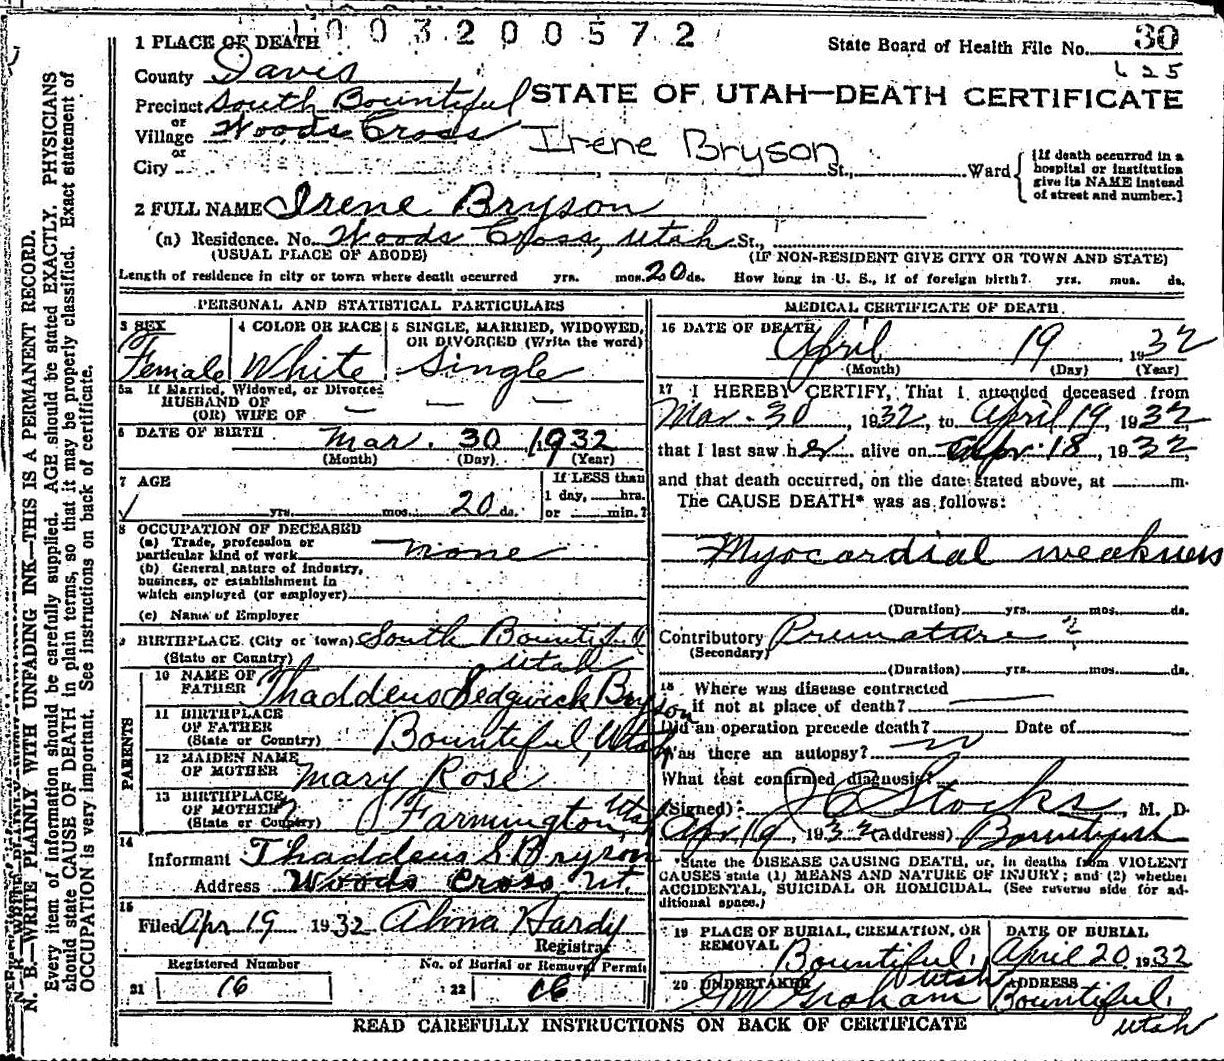 1003200572
1 PLACE OF DEATH
State Board of Health File No. 30
625
County Davis
Precinct South Bountiful
or
Village Woods Cross
or
City St., Ward
STATE OF UTAH—DEATH CERTIFICATE
Irene Bryson
[If death occurred in a
hospital or institution
give its NAME instead
of street and number.]
2 FULL NAME Irene Bryson
(a) Residence. No. Woods Cross, Utah St.,
(USUAL PLACE OF ABODE) (IF NON-RESIDENT GIVE CITY OR TOWN AND STATE)
Length of residence in city or town where death occurred yrs. mos. 20 ds. How long in U. S., if of foreign birth? yrs. mos. ds.
PERSONAL AND STATISTICAL PARTICULARS
3 SEX
Female
4 COLOR OR RACE
White
5 SINGLE, MARRIED, WIDOWED,
OR DIVORCED (Write the word)
Single
5a If Married, Widowed, or Divorced
HUSBAND OF
(OR) WIFE OF — — —
6 DATE OF BIRTH Mar. 30 1932
(Month) (Day) (Year)
7 AGE
yrs. mos. 20 ds.
If LESS than
1 day, hrs.
or min.?
8 OCCUPATION OF DECEASED
(a) Trade, profession or
particular kind of work none
(b) General nature of industry,
business, or establishment in
which employed (or employer)
(c) Name of Employer
9 BIRTHPLACE (City or town) South Bountiful
(State or Country) Utah
PARENTS
10 NAME OF
FATHER Thaddeus Sedgwick Bryson
11 BIRTHPLACE
OF FATHER
(State or Country) Bountiful, Utah
12 MAIDEN NAME
OF MOTHER Mary Rose
13 BIRTHPLACE
OF MOTHER
(State or Country) Farmington, Utah
14
Informant Thaddeus S Bryson
Address Woods Cross Ut.
15
Filed Apr 19 1932 Alma Hardy
Registrar
Registered Number No. of Burial or Removal Permit
21 16 22 16
MEDICAL CERTIFICATE OF DEATH
16 DATE OF DEATH
April 19, 1932
(Month) (Day) (Year)
17 I HEREBY CERTIFY, That I attended deceased from
Mar. 30, 1932, to April 19, 1932,
that I last saw her alive on Apr. 18, 1932,
and that death occurred, on the date stated above, at m.
The CAUSE DEATH* was as follows:
Myocardial weakness
(Duration) yrs. mos. ds.
Contributory Premature ?
(Secondary)
(Duration) yrs. mos. ds.
18 Where was disease contracted
if not at place of death?
Did an operation precede death? Date of
Was there an autopsy? no
What test confirmed diagnosis?
(Signed) J C Stocks, M. D.
Apr 19, 1932 (Address) Bountiful
*State the DISEASE CAUSING DEATH, or, in deaths from VIOLENT
CAUSES state (1) MEANS AND NATURE OF INJURY; and (2) whether
ACCIDENTAL, SUICIDAL OR HOMICIDAL. (See reverse side for ad-
ditional space.)
19 PLACE OF BURIAL, CREMATION, OR
REMOVAL
Bountiful, Utah
DATE OF BURIAL
April 20 1932
20 UNDERTAKER
G W Graham
ADDRESS
Bountiful,
Utah
READ CAREFULLY INSTRUCTIONS ON BACK OF CERTIFICATE
N. B.—WRITE PLAINLY WITH UNFADING INK—THIS IS A PERMANENT RECORD.
Every item of information should be carefully supplied. AGE should be stated EXACTLY. PHYSICIANS
should state CAUSE OF DEATH in plain terms, so that it may be properly classified. Exact statement of
OCCUPATION is very important. See instructions on back of certificate.